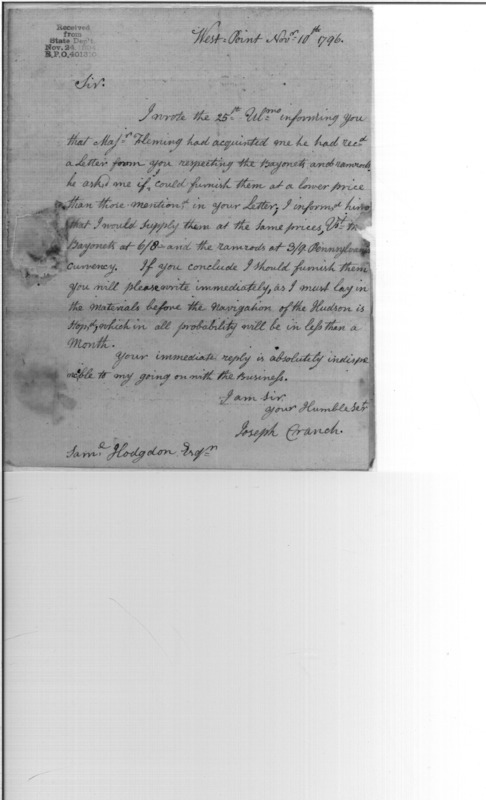 Received
from
State Dep't.
Nov. 24,
R.P.O. 401310
West-Point Novr. 10th 1796.
Sir.
I wrote the 25th Ulmo informing you
that Majr. Fleming had acquainted me he had recd
a Letter from you respecting the Bayonets and ramrods
he ask'd me if I could furnish them at a lower price
than those mentiond in your Letter, I informd him
that I would Supply them at the Same prices, Vt. the
Bayonets at 6/8 and the ramrods at 3/9 Pennsylvania
Currency. If you conclude I should furnish them
you will please write immediately, as I must lay in
the Materials before the Navigation of the Hudson is
Stopt, which in all probability will be in less than a
Month.
Your immediate reply is absolutely indispe
nsable to my going on with the Business.
I am Sir.
your Humble Sert
Joseph Cranch.
Saml. Hodgdon Esqr.